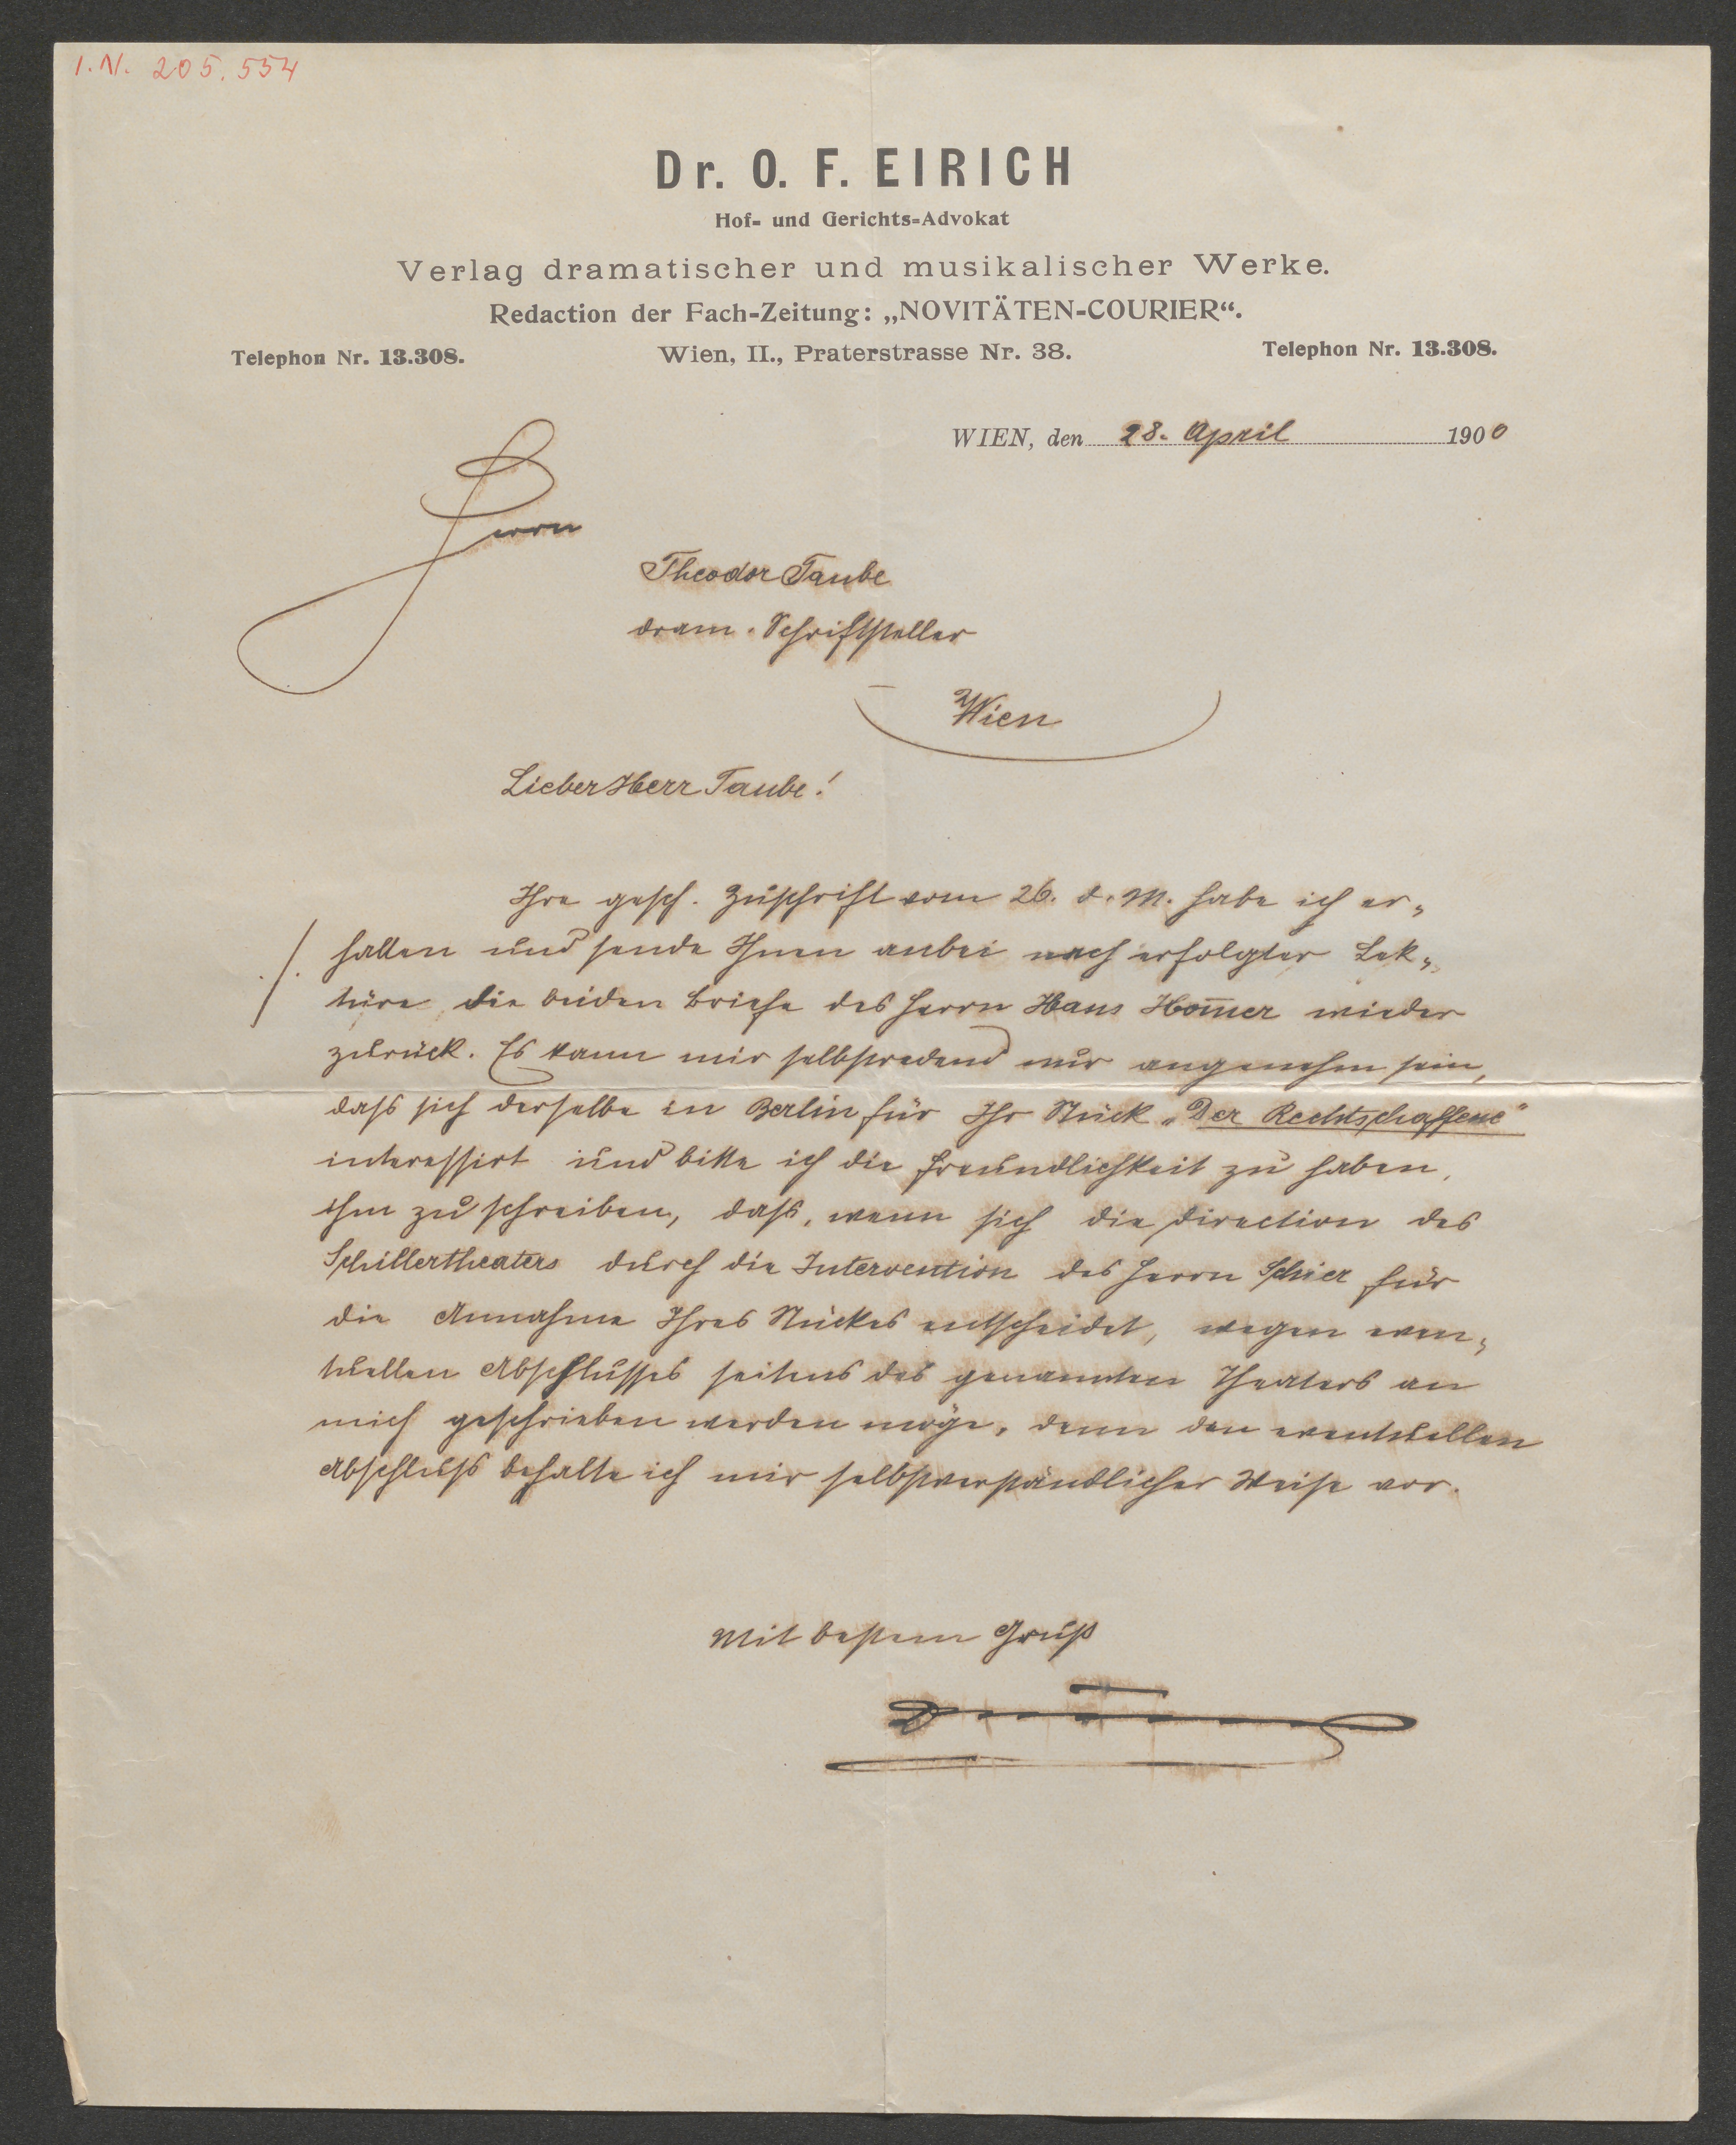 I. N. 205.554
Dr. O. F. EIRICH
Hof- und Gerichts-Advokat
Verlag dramatischer und musikalischer Werke.
Redaction der Fach-Zeitung: „NOVITÄTEN-COURIER“.
Telephon Nr. 13.308. Wien, II., Praterstrasse Nr. 38. Telephon Nr. 13.308.
WIEN, den 28. April 1900
Herrn
Theodor Taube
dram. Schriftsteller
Wien
Lieber Herr Taube!
Ihre gesch. Zuschrift vom 26. d. M. habe ich er„
./. halten und sende Ihnen anbei nach erfolgter Lek„
türe die beiden Briefe des Herrn Hans Hom̄er wieder
zurück. Es kann mir selbstredend nur angenehm sein,
dass sich derselbe in Berlin für Ihr Stück „Der Rechtschaffene“
interessirt und bitte ich die Freundlichkeit zu haben,
ihm zu schreiben, dass, wenn sich die Direction des
Schillertheaters durch die Intervention des Herrn Schier für
die Annahme Ihres Stückes entscheidet, wegen even„
tuellen Abschlusses seitens des genannten Theaters an
mich geschrieben werden möge, denn den eventuellen
Abschluss behalte ich mir selbstverständlicher Weise vor.
Mit bestem Gruß